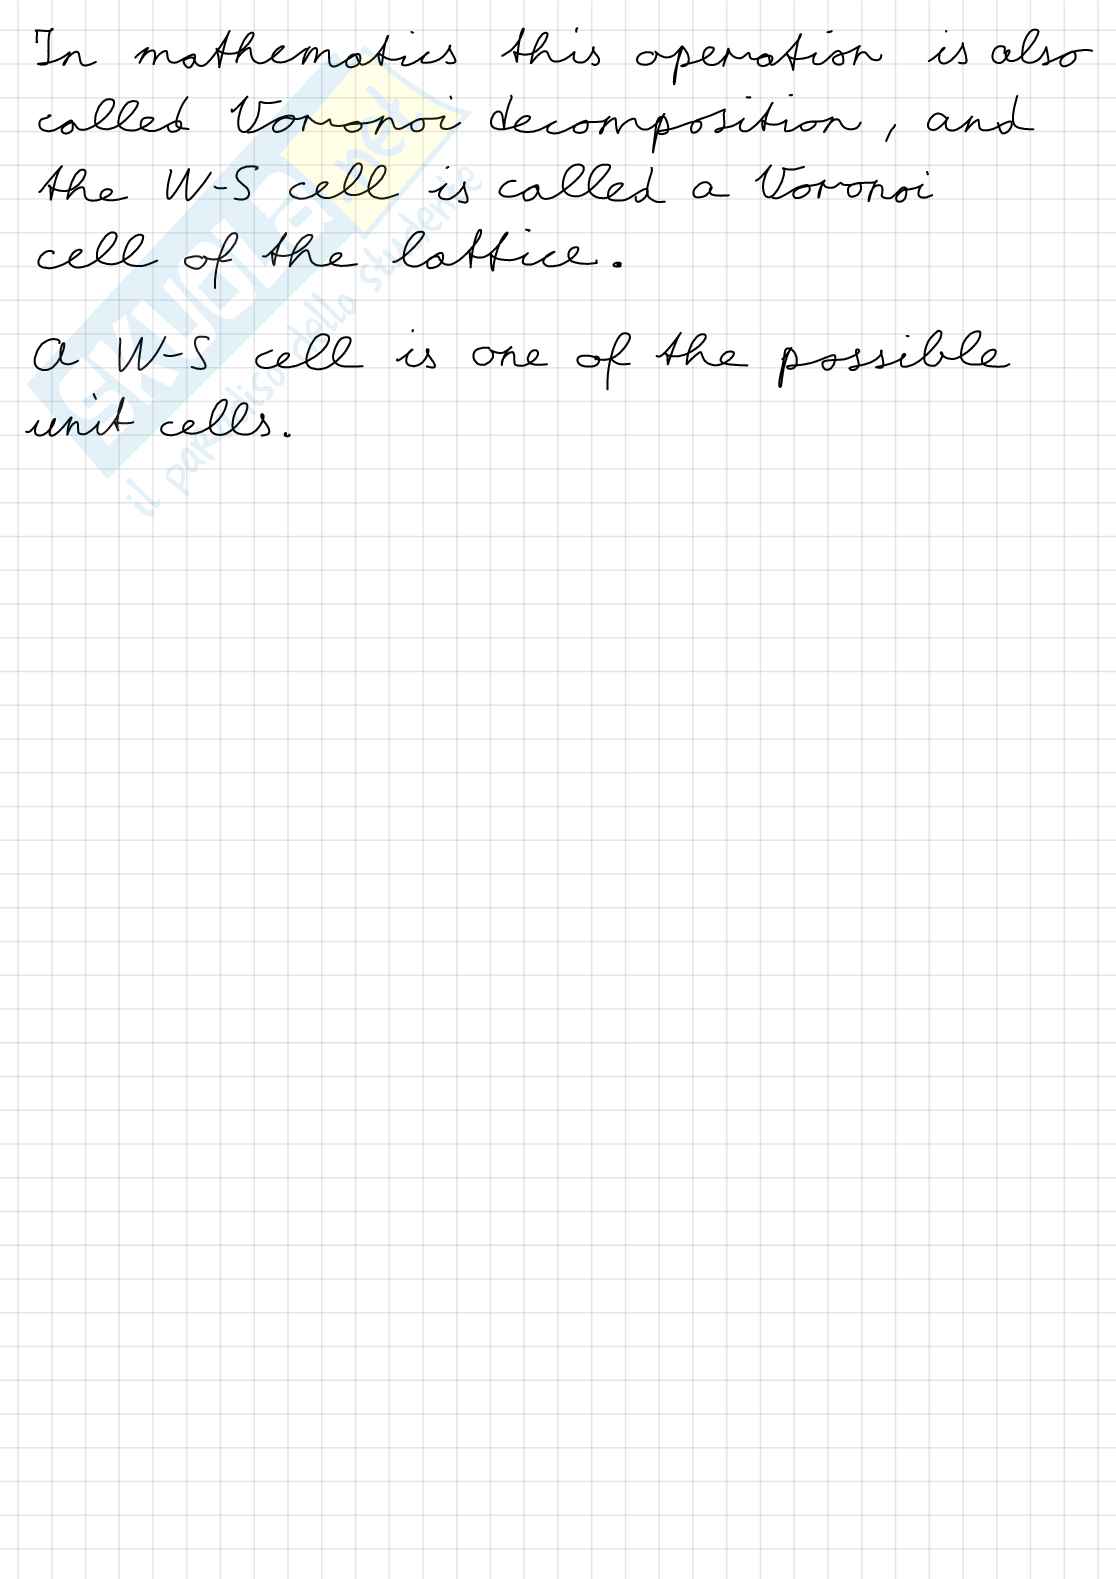 In mathematics this operation is also
called Voronoi decomposition, and
the W-S cell is called a Voronoi
cell of the lattice.
a W-S cell is one of the possible
unit cells.
SKUOLA.net
il paradiso dello studente